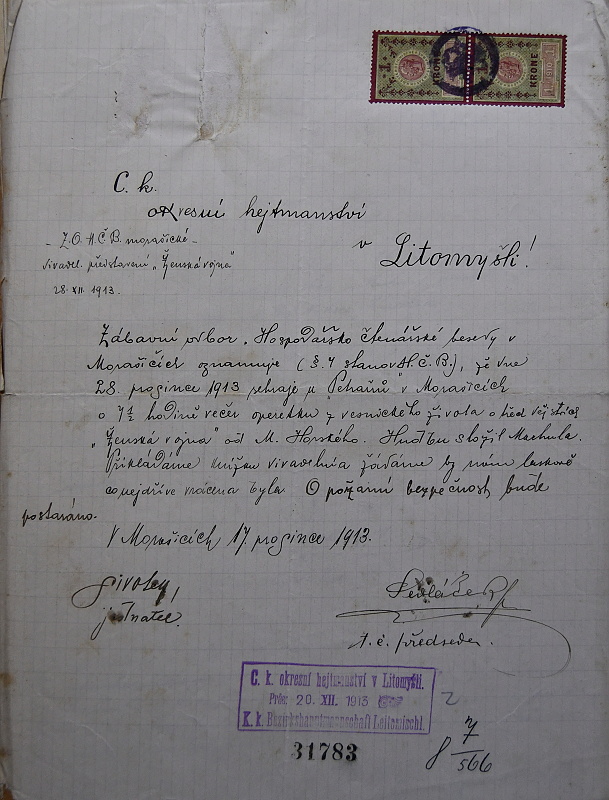 1 KRONE
KRONE 1
C. k.
okresní hejtmanství
v Litomyšli!
Z. O. H. Č. B. morašické
divadel. představení „Ženská vojna“
28. XII. 1913.
Zábavní odbor „Hospodářsko čtenářské besedy v
Morašicích oznamuje (§. 4 stanov H. Č. B.), že dne
28. prosince 1913 sehraje u Peřinů v Morašicích
o 7 1/2 hodině večer operettu z vesnického života o třech dějstvích
„Ženská vojna“ od M. Horského. Hudbu složil Machula.
Přikládáme knížku žádáme by nám laskavě
co nejdříve vrácena byla. O požární bezpečnost bude
postaráno.
V Morašicích 17. prosince 1913.
jednatel.
Sedláček
t. č. předseda.
C. k. okresní hejtmanství v Litomyšli.
Präs: 20. XII. 1913
K. k. Bezirkshauptmannschaft Leitomischl.
31783
2
8 7/566